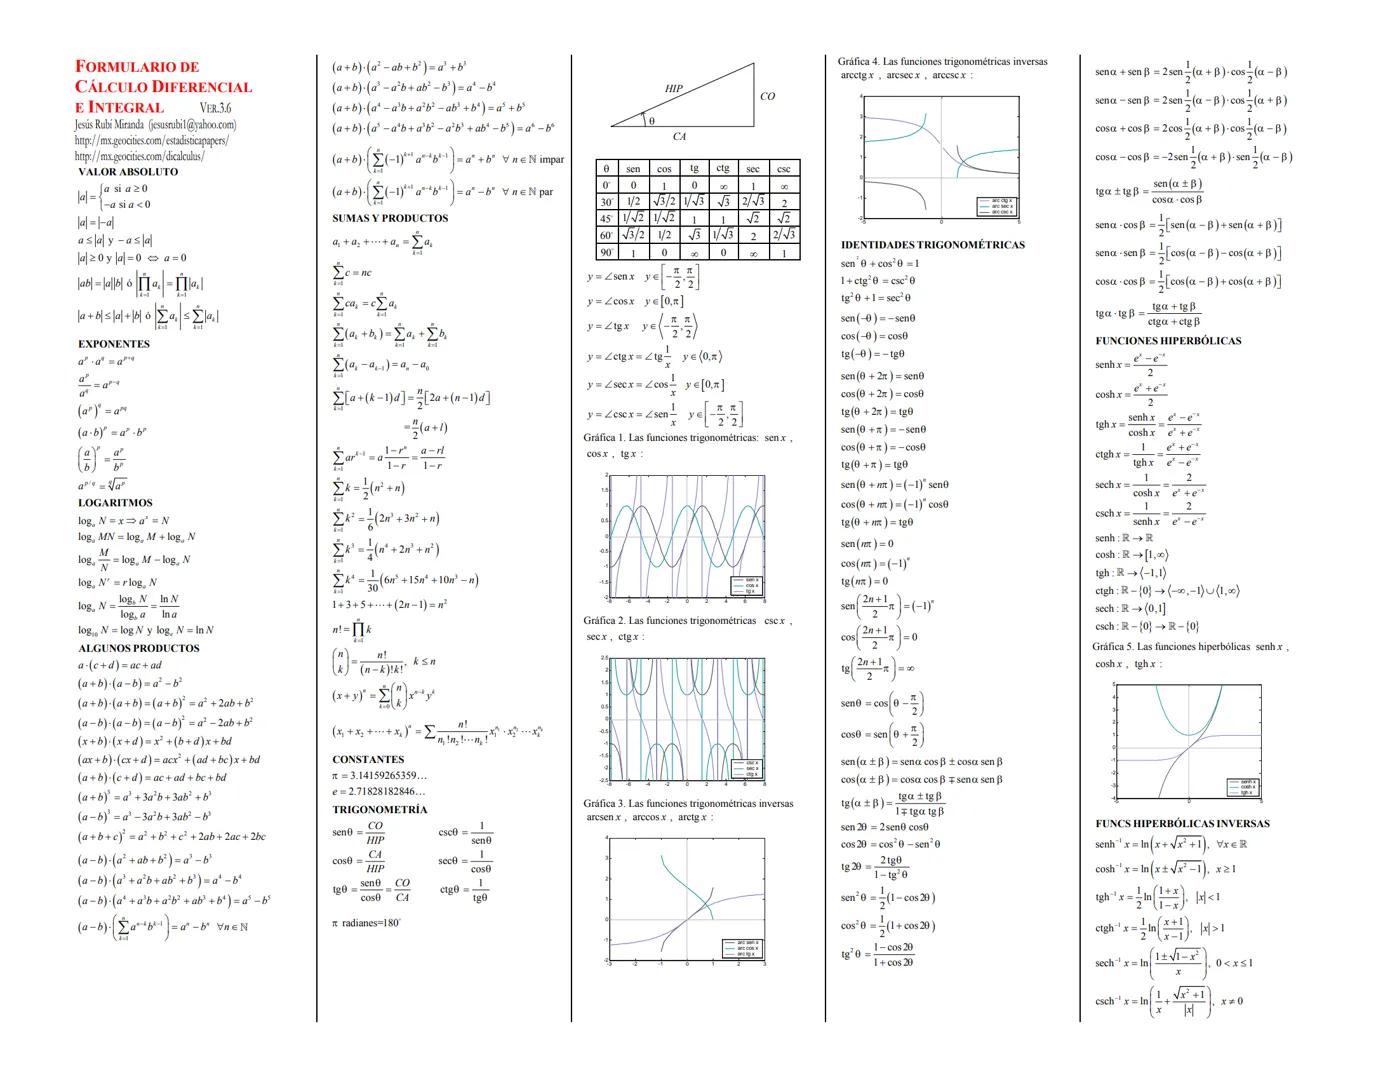 FORMULARIO DE
CÁLCULO DIFERENCIAL
E INTEGRAL VER.3.6
Jesús Rubí Miranda (jesusrubi1@yahoo.com)
http://mx.geocities.com/estadisticapapers/
http://mx.geocities.com/dicalculus/
VALOR ABSOLUTO
|a| = { a si a ≥ 0
−a si a < 0
|a| = |−a|
a ≤ |a| y −a ≤ |a|
|a| ≥ 0 y |a| = 0 ⇔ a = 0
|ab| = |a||b| ó |∏_{k=1}^{n} a_k| = ∏_{k=1}^{n} |a_k|
|a+b| ≤ |a|+|b| ó |∑_{k=1}^{n} a_k| ≤ ∑_{k=1}^{n} |a_k|
EXPONENTES
a^p · a^q = a^{p+q}
a^p / a^q = a^{p−q}
(a^p)^q = a^{pq}
(a·b)^p = a^p · b^p
(a/b)^p = a^p / b^p
a^{p/q} = ^q√(a^p)
LOGARITMOS
log_a N = x ⇒ a^x = N
log_a MN = log_a M + log_a N
log_a M/N = log_a M − log_a N
log_a N^r = r log_a N
log_a N = log_b N / log_b a = ln N / ln a
log_10 N = log N y log_e N = ln N
ALGUNOS PRODUCTOS
a·(c+d) = ac + ad
(a+b)·(a−b) = a² − b²
(a+b)·(a+b) = (a+b)² = a² + 2ab + b²
(a−b)·(a−b) = (a−b)² = a² − 2ab + b²
(x+b)·(x+d) = x² + (b+d)x + bd
(ax+b)·(cx+d) = acx² + (ad+bc)x + bd
(a+b)·(c+d) = ac + ad + bc + bd
(a+b)³ = a³ + 3a²b + 3ab² + b³
(a−b)³ = a³ − 3a²b + 3ab² − b³
(a+b+c)² = a² + b² + c² + 2ab + 2ac + 2bc
(a−b)·(a² + ab + b²) = a³ − b³
(a−b)·(a³ + a²b + ab² + b³) = a⁴ − b⁴
(a−b)·(a⁴ + a³b + a²b² + ab³ + b⁴) = a⁵ − b⁵
(a−b)·(∑_{k=1}^{n} a^{n−k} b^{k−1}) = a^n − b^n ∀n ∈ ℕ
(a+b)·(a² − ab + b²) = a³ + b³
(a+b)·(a³ − a²b + ab² − b³) = a⁴ − b⁴
(a+b)·(a⁴ − a³b + a²b² − ab³ + b⁴) = a⁵ + b⁵
(a+b)·(a⁵ − a⁴b + a³b² − a²b³ + ab⁴ − b⁵) = a⁶ − b⁶
(a+b)·(∑_{k=1}^{n} (−1)^{k+1} a^{n−k} b^{k−1}) = a^n + b^n ∀ n ∈ ℕ impar
(a+b)·(∑_{k=1}^{n} (−1)^{k+1} a^{n−k} b^{k−1}) = a^n − b^n ∀ n ∈ ℕ par
SUMAS Y PRODUCTOS
a₁ + a₂ + ⋯ + a_n = ∑_{k=1}^{n} a_k
∑_{k=1}^{n} c = nc
∑_{k=1}^{n} ca_k = c ∑_{k=1}^{n} a_k
∑_{k=1}^{n} (a_k + b_k) = ∑_{k=1}^{n} a_k + ∑_{k=1}^{n} b_k
∑_{k=1}^{n} (a_k − a_{k−1}) = a_n − a₀
∑_{k=1}^{n} [a + (k−1)d] = n/2 [2a + (n−1)d]
= n/2 (a+l)
∑_{k=1}^{n} ar^{k−1} = a (1−r^n)/(1−r) = (a−rl)/(1−r)
∑_{k=1}^{n} k = 1/2 (n² + n)
∑_{k=1}^{n} k² = 1/6 (2n³ + 3n² + n)
∑_{k=1}^{n} k³ = 1/4 (n⁴ + 2n³ + n²)
∑_{k=1}^{n} k⁴ = 1/30 (6n⁵ + 15n⁴ + 10n³ − n)
1 + 3 + 5 + ⋯ + (2n−1) = n²
n! = ∏_{k=1}^{n} k
(n k) = n! / ((n−k)!k!), k ≤ n
(x+y)^n = ∑_{k=0}^{n} (n k) x^{n−k} y^k
(x₁ + x₂ + ⋯ + x_k)^n = ∑ n!/(n₁!n₂!⋯n_k!) x₁^{n₁} · x₂^{n₂} ⋯ x_k^{n_k}
CONSTANTES
π = 3.14159265359…
e = 2.71828182846…
TRIGONOMETRÍA
senθ = CO/HIP cscθ = 1/senθ
cosθ = CA/HIP secθ = 1/cosθ
tgθ = senθ/cosθ = CO/CA ctgθ = 1/tgθ
π radianes=180°
HIP
CO
θ
CA
θ sen cos tg ctg sec csc
0° 0 1 0 ∞ 1 ∞
30° 1/2 √3/2 1/√3 √3 2/√3 2
45° 1/√2 1/√2 1 1 √2 √2
60° √3/2 1/2 √3 1/√3 2 2/√3
90° 1 0 ∞ 0 ∞ 1
y = ∠sen x y ∈ [−π/2, π/2]
y = ∠cos x y ∈ [0, π]
y = ∠tg x y ∈ ⟨−π/2, π/2⟩
y = ∠ctg x = ∠tg 1/x y ∈ ⟨0, π⟩
y = ∠sec x = ∠cos 1/x y ∈ [0, π]
y = ∠csc x = ∠sen 1/x y ∈ [−π/2, π/2]
Gráfica 1. Las funciones trigonométricas: sen x ,
cos x , tg x :
2
1.5
1
0.5
0
-0.5
-1
-1.5
-2
-8 -6 -4 -2 0 2 4 6 8
sen x
cos x
tg x
Gráfica 2. Las funciones trigonométricas csc x ,
sec x , ctg x :
2.5
2
1.5
1
0.5
0
-0.5
-1
-1.5
-2
-2.5
-8 -6 -4 -2 0 2 4 6 8
csc x
sec x
ctg x
Gráfica 3. Las funciones trigonométricas inversas
arcsen x , arccos x , arctg x :
4
3
2
1
0
-1
-2
-3 -2 -1 0 1 2 3
arc sen x
arc cos x
arc tg x
Gráfica 4. Las funciones trigonométricas inversas
arcctg x , arcsec x , arccsc x :
4
3
2
1
0
-1
-2
-5 0 5
arc ctg x
arc sec x
arc csc x
IDENTIDADES TRIGONOMÉTRICAS
sen²θ + cos²θ = 1
1 + ctg²θ = csc²θ
tg²θ + 1 = sec²θ
sen(−θ) = −senθ
cos(−θ) = cosθ
tg(−θ) = −tgθ
sen(θ + 2π) = senθ
cos(θ + 2π) = cosθ
tg(θ + 2π) = tgθ
sen(θ + π) = −senθ
cos(θ + π) = −cosθ
tg(θ + π) = tgθ
sen(θ + nπ) = (−1)^n senθ
cos(θ + nπ) = (−1)^n cosθ
tg(θ + nπ) = tgθ
sen(nπ) = 0
cos(nπ) = (−1)^n
tg(nπ) = 0
sen((2n+1)/2 π) = (−1)^n
cos((2n+1)/2 π) = 0
tg((2n+1)/2 π) = ∞
senθ = cos(θ − π/2)
cosθ = sen(θ + π/2)
sen(α ± β) = senα cosβ ± cosα senβ
cos(α ± β) = cosα cosβ ∓ senα senβ
tg(α ± β) = (tgα ± tgβ)/(1 ∓ tgα tgβ)
sen 2θ = 2senθ cosθ
cos 2θ = cos²θ − sen²θ
tg 2θ = 2tgθ/(1 − tg²θ)
sen²θ = 1/2 (1 − cos 2θ)
cos²θ = 1/2 (1 + cos 2θ)
tg²θ = (1 − cos 2θ)/(1 + cos 2θ)
senα + senβ = 2sen 1/2 (α + β)·cos 1/2 (α − β)
senα − senβ = 2sen 1/2 (α − β)·cos 1/2 (α + β)
cosα + cosβ = 2cos 1/2 (α + β)·cos 1/2 (α − β)
cosα − cosβ = −2sen 1/2 (α + β)·sen 1/2 (α − β)
tgα ± tgβ = sen(α ± β)/(cosα·cosβ)
senα·cosβ = 1/2 [sen(α − β) + sen(α + β)]
senα·senβ = 1/2 [cos(α − β) − cos(α + β)]
cosα·cosβ = 1/2 [cos(α − β) + cos(α + β)]
tgα·tgβ = (tgα + tgβ)/(ctgα + ctgβ)
FUNCIONES HIPERBÓLICAS
senh x = (e^x − e^{−x})/2
cosh x = (e^x + e^{−x})/2
tgh x = senh x/cosh x = (e^x − e^{−x})/(e^x + e^{−x})
ctgh x = 1/tgh x = (e^x + e^{−x})/(e^x − e^{−x})
sech x = 1/cosh x = 2/(e^x + e^{−x})
csch x = 1/senh x = 2/(e^x − e^{−x})
senh : ℝ → ℝ
cosh : ℝ → [1, ∞⟩
tgh : ℝ → ⟨−1, 1⟩
ctgh : ℝ − {0} → ⟨−∞, −1⟩ ∪ ⟨1, ∞⟩
sech : ℝ → ⟨0, 1]
csch : ℝ − {0} → ℝ − {0}
Gráfica 5. Las funciones hiperbólicas senh x ,
cosh x , tgh x :
5
4
3
2
1
0
-1
-2
-3
-4
-5 0 5
senh x
cosh x
tgh x
FUNCS HIPERBÓLICAS INVERSAS
senh⁻¹ x = ln(x + √(x² + 1)), ∀x ∈ ℝ
cosh⁻¹ x = ln(x ± √(x² − 1)), x ≥ 1
tgh⁻¹ x = 1/2 ln((1 + x)/(1 − x)), |x| < 1
ctgh⁻¹ x = 1/2 ln((x + 1)/(x − 1)), |x| > 1
sech⁻¹ x = ln((1 ± √(1 − x²))/x), 0 < x ≤ 1
csch⁻¹ x = ln(1/x + √(x² + 1)/|x|), x ≠ 0